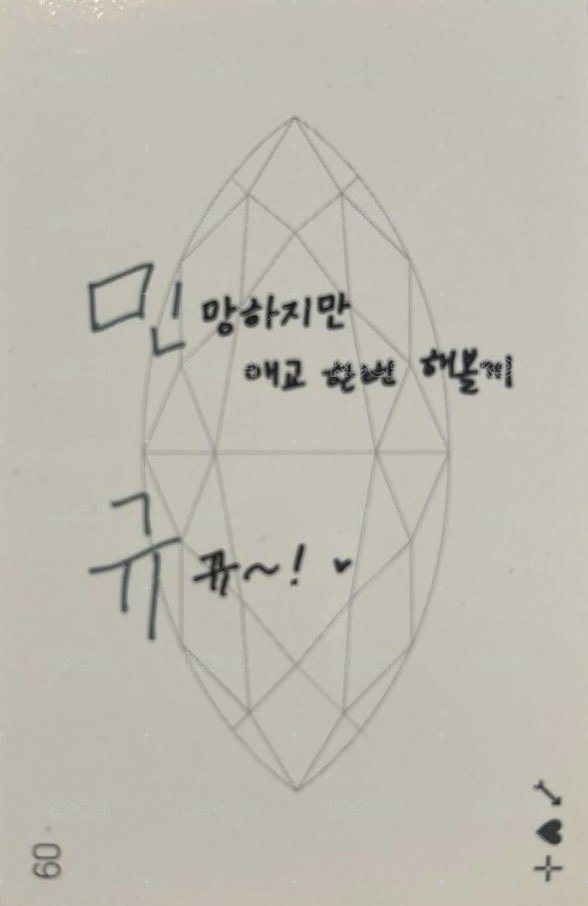 민 망하지만
애교 한번 해볼게
규 뀨~! ♥
60